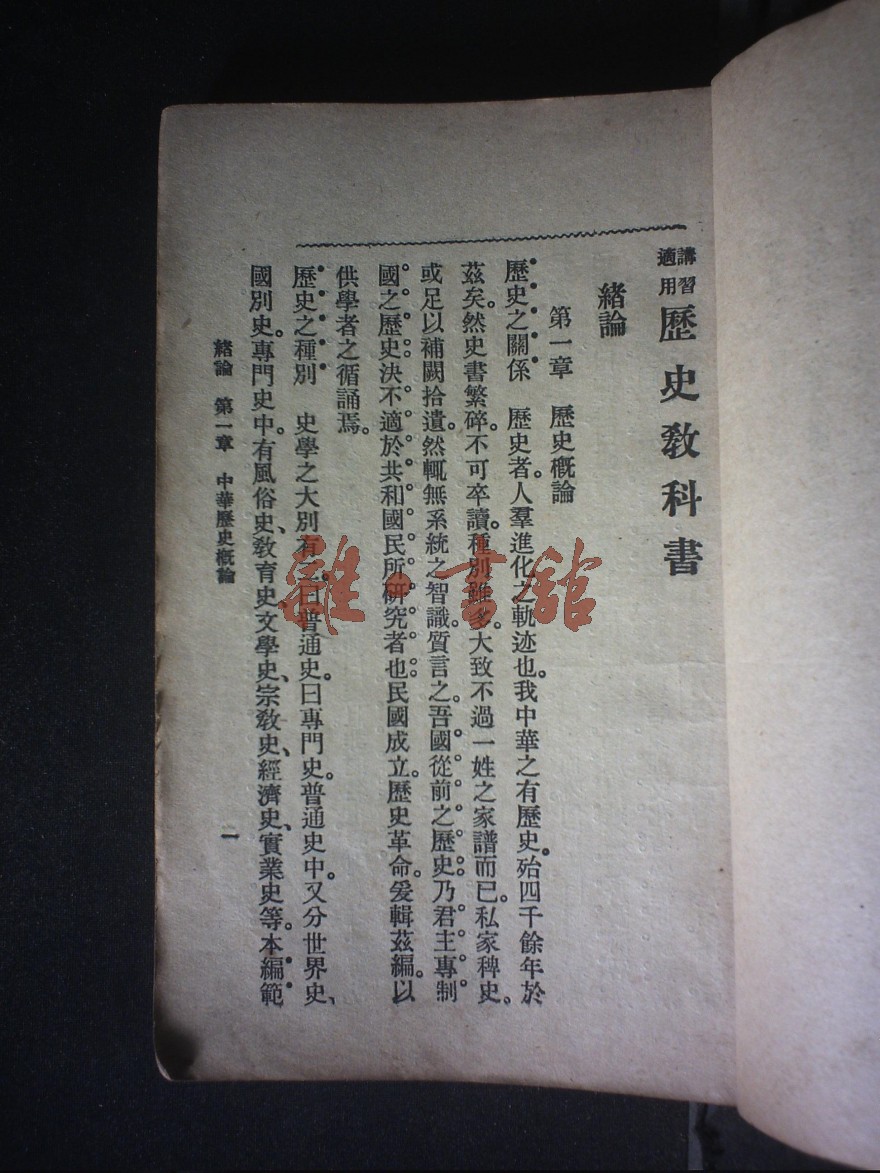 講習適用歷史教科書
緒論
第一章　歷史概論
歷史之關係　歷史者。人羣進化之軌迹也。我中華之有歷史。殆四千餘年於
茲矣。然史書繁碎。不可卒讀。種別雖多。大致不過一姓之家譜而已。私家稗史、
或足以補闕拾遺。然輒無系統之智識。質言之。吾國從前之歷史。乃君主專制
國之歷史。決不適於共和國民所研究者也。民國成立。歷史革命。爰輯茲編。以
供學者之循誦焉。
歷史之種別　史學之大別有二。曰普通史。曰專門史。普通史中。又分世界史、
國別史。專門史中。有風俗史、教育史、文學史、宗教史、經濟史、實業史等。本編範
緒論　第一章　中華歷史概論
一
雜·書館